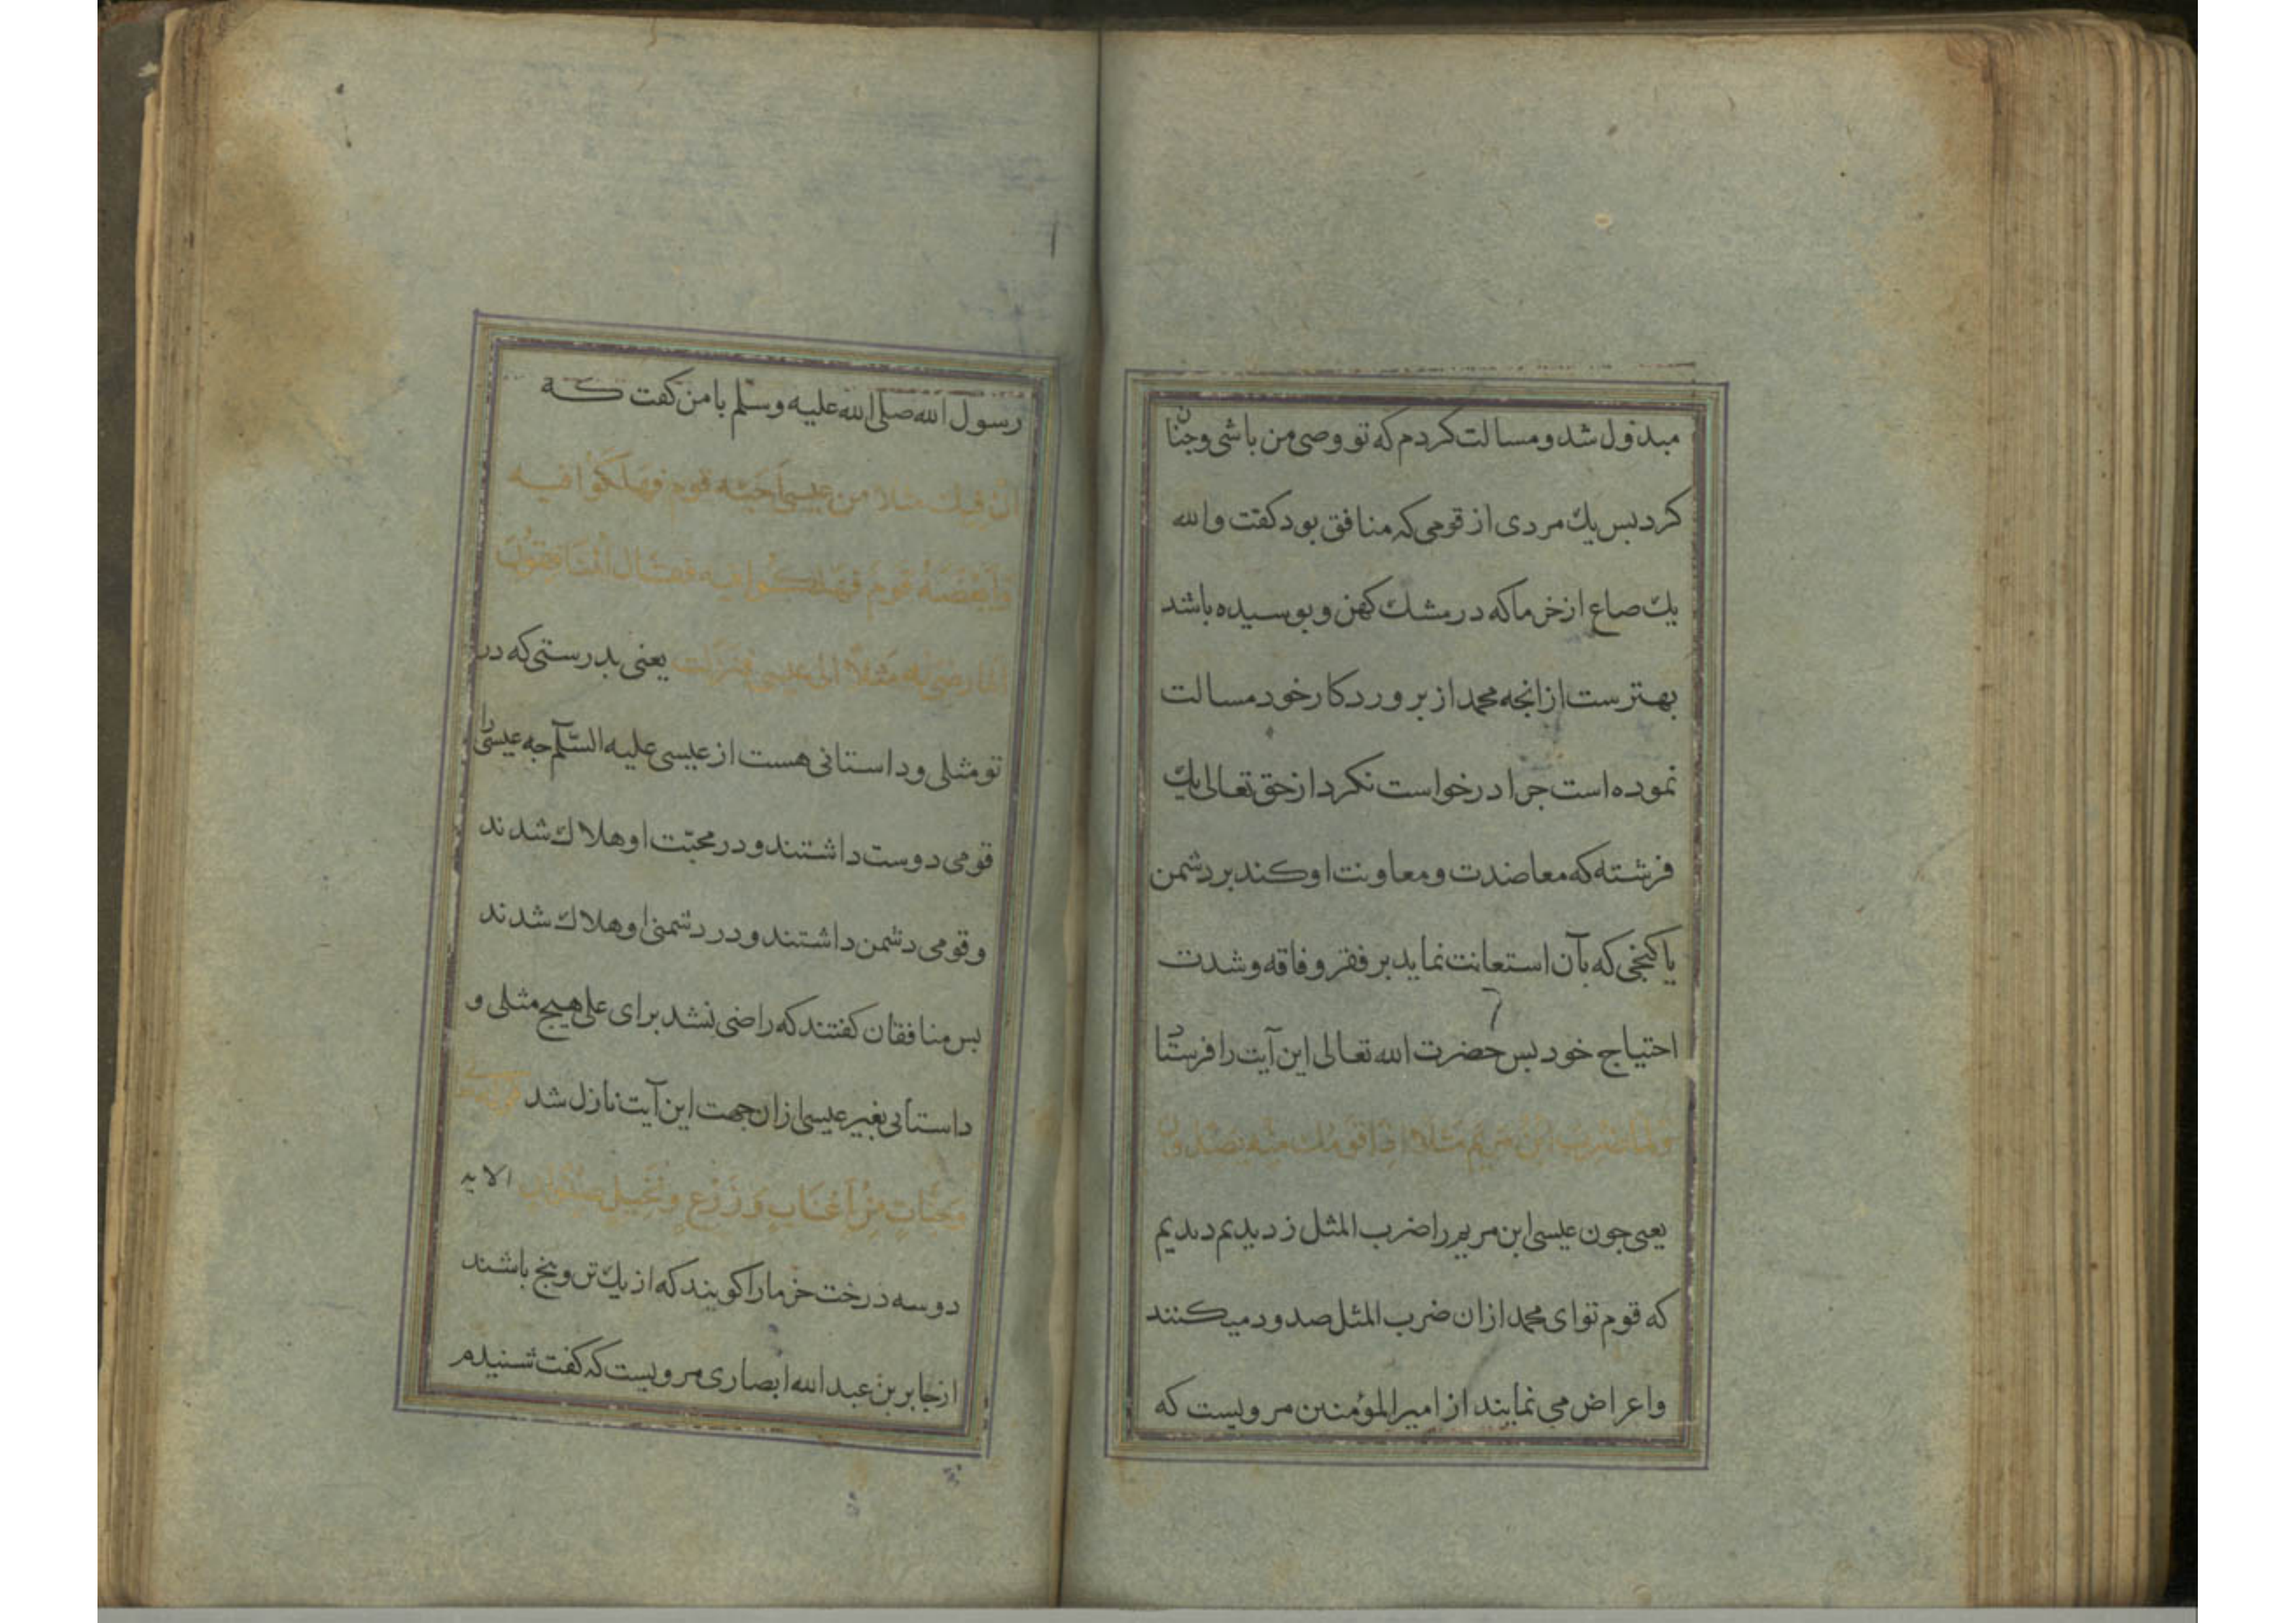 مبذول شد و مسالت کردم که تو وصی من باشی و جنان
کرد بس یك مردی از قومی که منافق بود کفت والله
یك صاع از خرما که در مشك کهن و بوسیده باشد
بهترست از انجه محمد از بروردکار خود مسالت
نموده است جرا درخواست نکرد از حق تعالی یك
فرشته که معاضدت و معاونت او کند بر دشمن
یا کنجی که بآن استعانت نماید بر فقر و فاقه و شدت
احتیاج خود بس حضرت الله تعالی این آیت را فرستاد
ولما ضرب ابن مریم مثلا اذا قومك منه یصدون
یعنی جون عیسی ابن مریم را ضرب المثل زدیم دیدیم
که قوم تو ای محمد ازان ضرب المثل صدود میکنند
و اعراض می نمایند از امیر المؤمنین مرویست که
رسول الله صلی الله علیه وسلم با من کفت که
ان فیك مثلا من عیسی احبه قوم فهلکوا فیه
وابغضه قوم فهلکوا فیه فقال المنافقون
اما رضی له مثلا الا عیسی فنزلت یعنی بدرستی که در
تو مثلی و داستانی هست از عیسی علیه السلم جه عیسی را
قومی دوست داشتند و در محبت او هلاك شدند
و قومی دشمن داشتند و در دشمنی او هلاك شدند
بس منافقان کفتند که راضی نشد برای علی هیج مثلی و
داستانی بغیر عیسی ازان جهت این آیت نازل شد
وجنات من اعناب وزرع ونخیل صنوان الایه
دو سه درخت خرما را کویند که از یك تن و بیخ باشند
از جابر بن عبد الله انصاری مرویست که کفت شنیدم